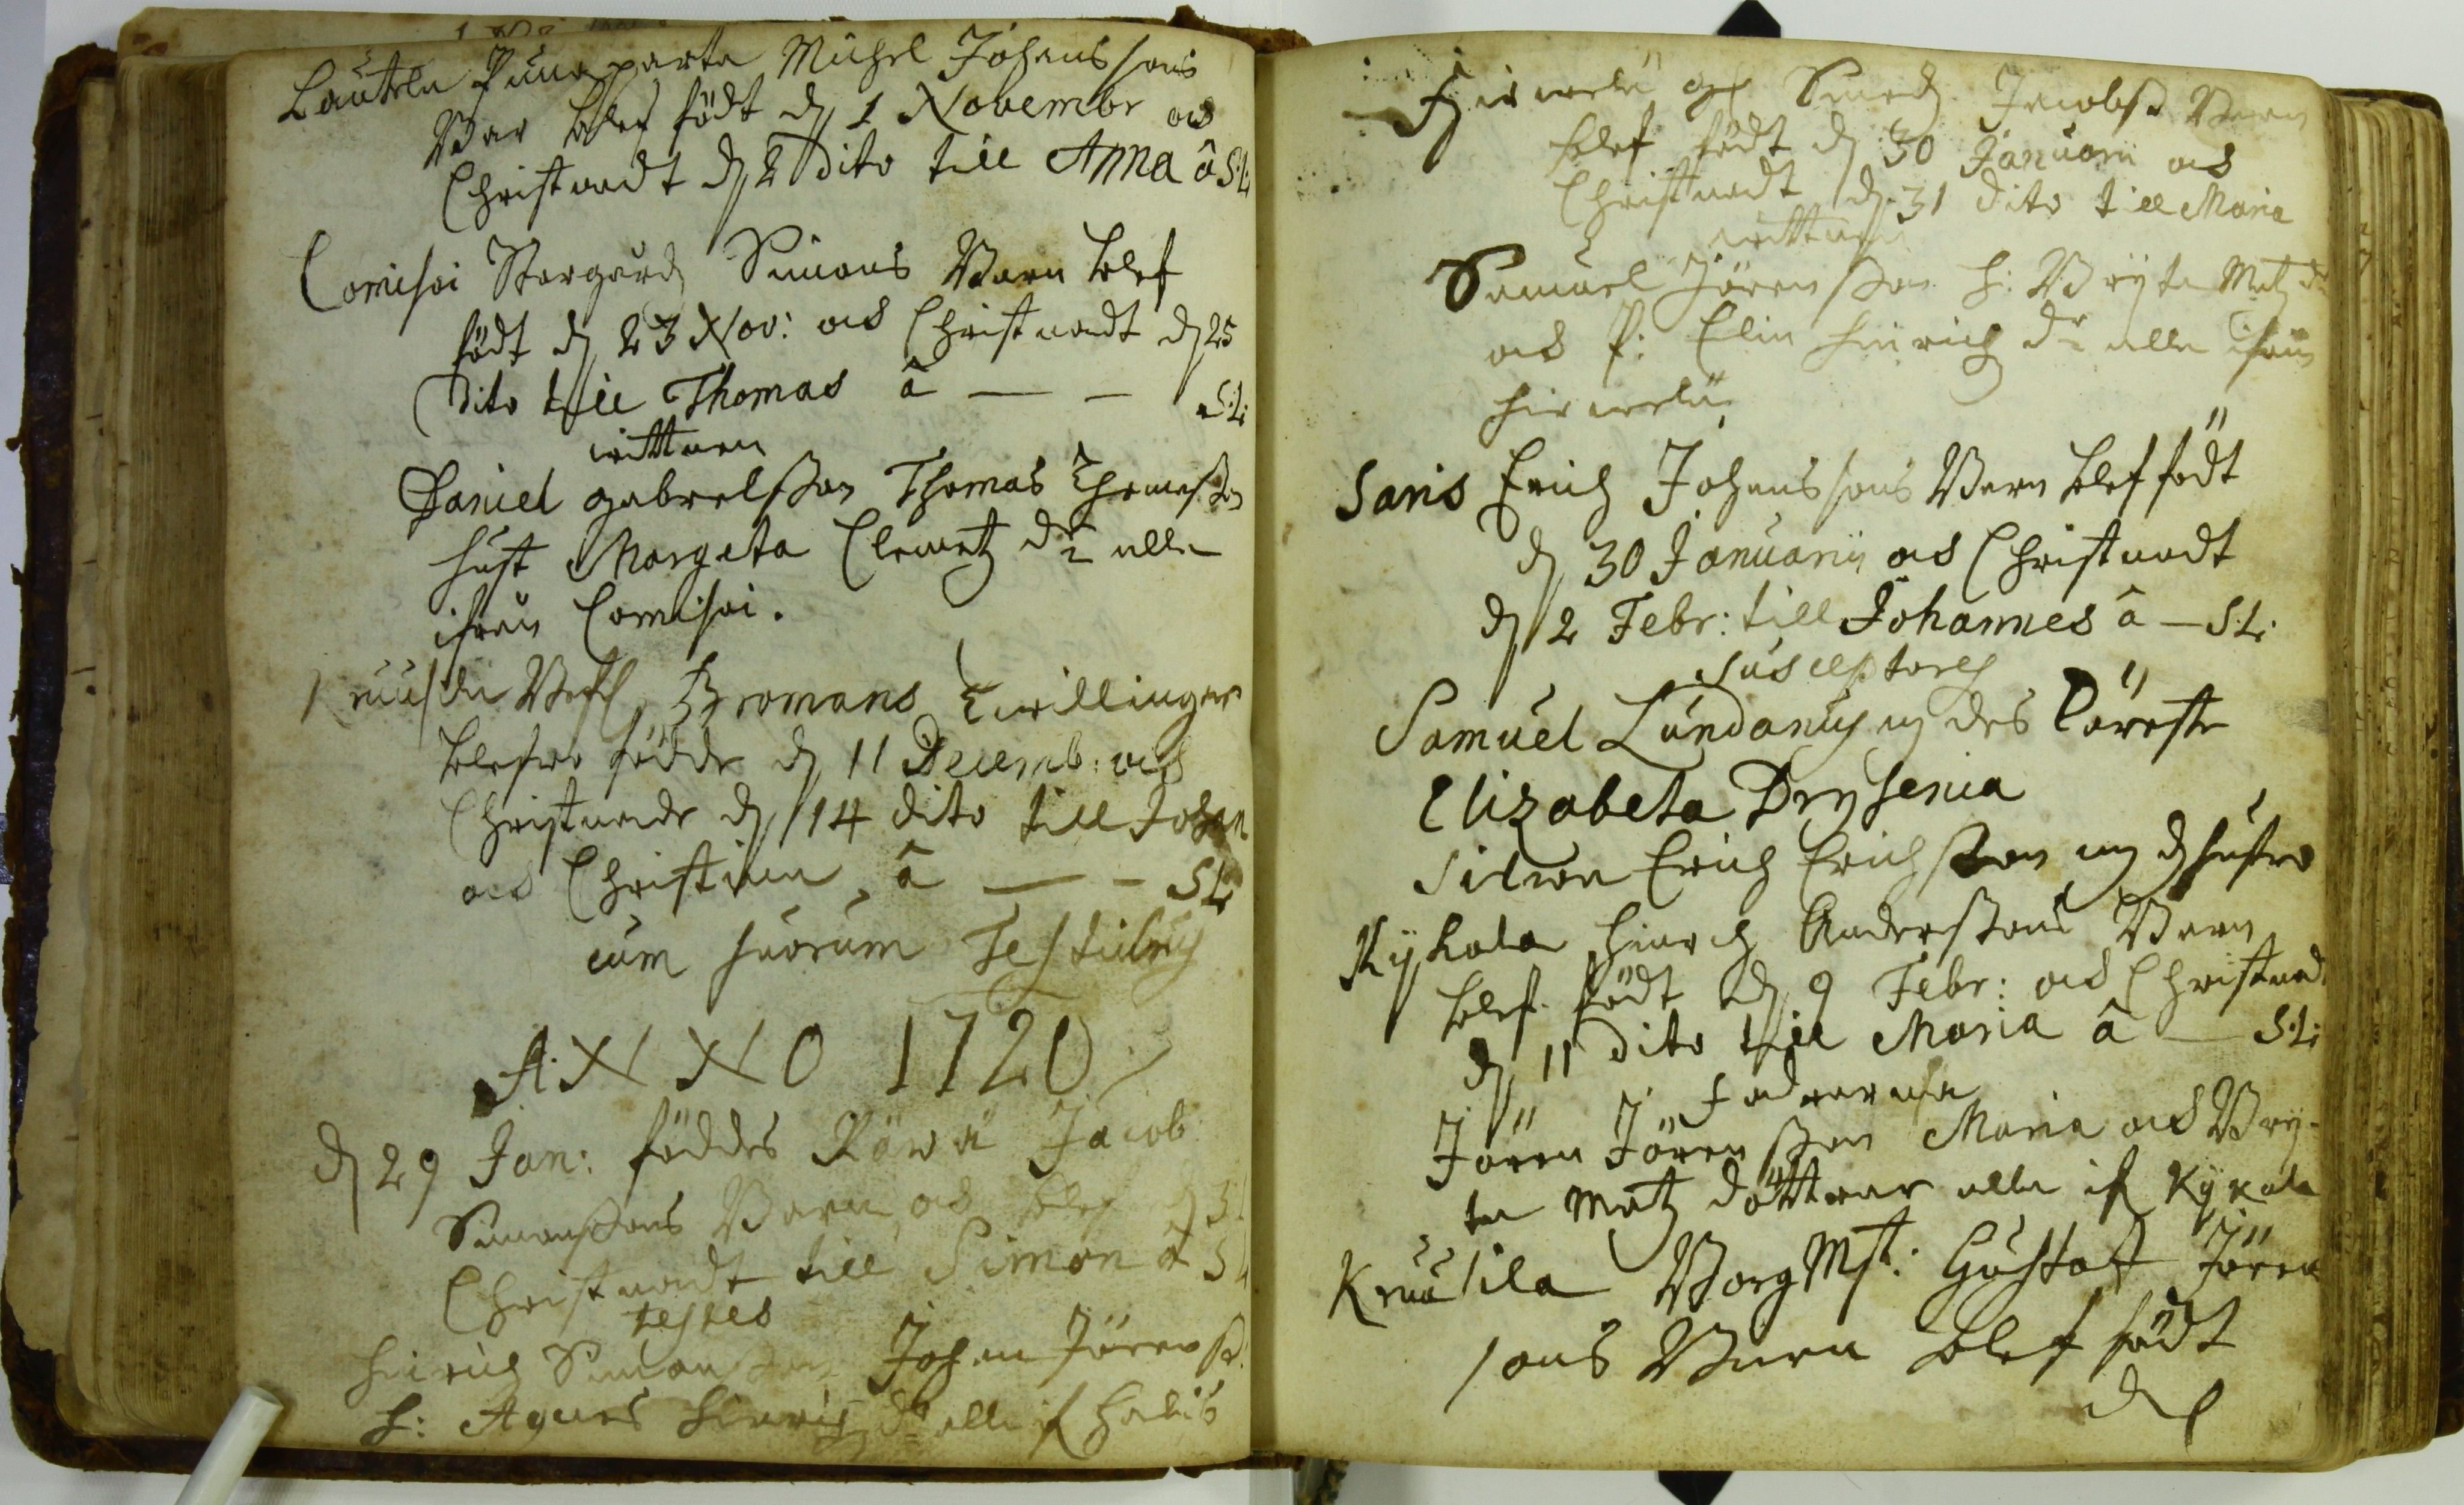 Lautela Punaparta Michel Johansons
Barn blef födt d, 1 Novembr och
Christnadt d, 2 dito till Anna â S:L:
Comihoi Storgård Simons Barn blef
födt d, 23 Nov: och Christnadt d, 25
dito till Thomas â — — S:L:
wittnen
Daniel gabrelsson Thomas Thomesson
hust Margeta Clemetz dr alla
ifrån Comihoi.
Kruusila Bromans Twillingar
blefwo födde d, 11 Decemb: och
Christnade d, 14 dito till Johan
och Christina, â — — S:L:
cum suorum Testibus
ANNO 1720
d, 29 Jan: föddes Röwä Jacob
Simonsons Barn och blef d, 31
Christnadt till Simon â S:L:
testes
Hinrich Simonsson Johan Jörensß.
h: Agnes Hinrichz dr alla if
Hirwelä Jacobß Barn
blef födt d, 30 Januarii och
Christnadt d, 31 dito till Maria
wittnen
Samuel Jörensson h: Bryta Matz dr
och P: Elin Hinrich dr alla ifrån
Hirwelä
Saris Erich Johansons Barn blef födt
d, 30 Januarij och Christnadt
d, 2 Febr: till Johannes â — S:L:
susceptores
Samuel Lundanus m des Käreste
Elizabeta Drysenia
Erich Erichsson m d, hustro
Kykala Hinrich Anderssons Barn
blef födt d, 9 Febr: och Christnad
d, 11 dito till Maria â — S:L:
Faderarna
Jören Jörensson Maria och Bry-
ta Matz döttrar alla if Kykala
Kruusila BorgMst: Gustaf Jören
sons Barn blef födt